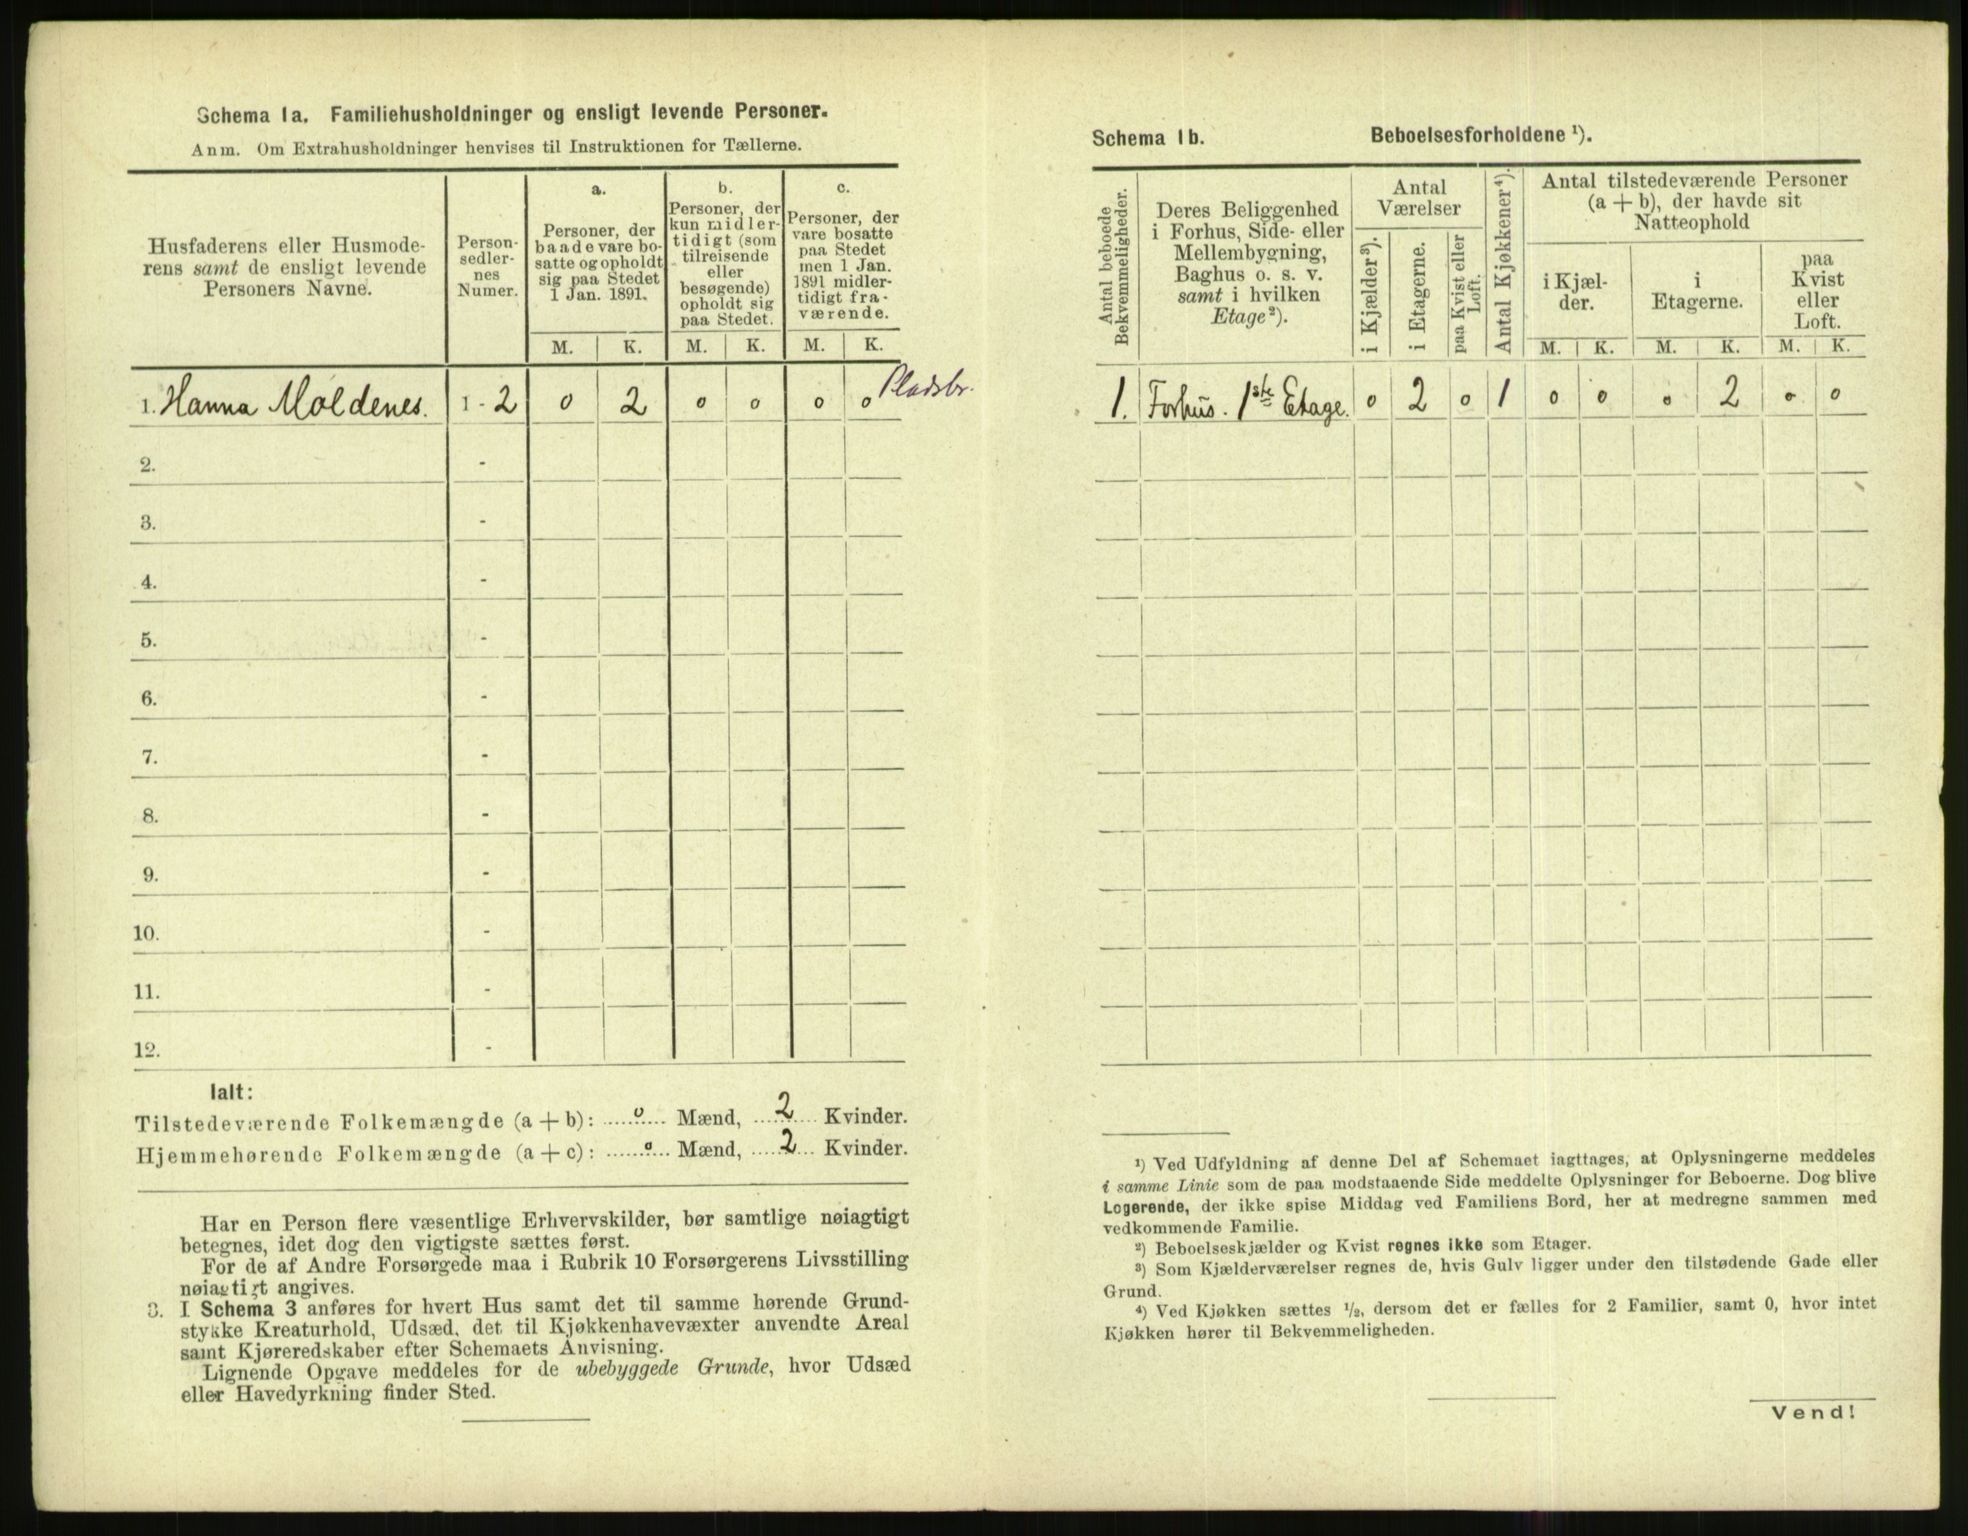 Schema 1a. Familiehusholdninger og ensligt levende Personer.
Anm. Om Extrahusholdninger henvises til Instruktionen for Tællerne.
Husfaderens eller Husmode-
rens samt de ensligt levende
Personers Navne.
Person-
sedler-
nes
Numer.
a.
Personer, der
baade vare bo-
satte og opholdt
sig paa Stedet
1 Jan. 1891.
b.
Personer, der
kun midler-
tidigt (som
tilreisende
eller
besøgende)
opholdt sig
paa Stedet.
c.
Personer, der
vare bosatte
paa Stedet
men 1 Jan.
1891 midler-
tidigt fra-
værende.
M. K. M. K. M. K.
1. Hanna Moldenes. 1 - 2 0 2 0 0 0 0 Pladsbr.
2. -
3. -
4. -
5. -
6. -
7. -
8. -
9. -
10. -
11. -
12. -
Ialt:
Tilstedeværende Folkemængde (a + b): 0 Mænd, 2 Kvinder.
Hjemmehørende Folkemængde (a + c): 0 Mænd, 2 Kvinder.
Har en Person flere væsentlige Erhvervskilder, bør samtlige nøiagtigt
betegnes, idet dog den vigtigste sættes først.
For de af Andre Forsørgede maa i Rubrik 10 Forsørgerens Livsstilling
nøiagtigt angives.
3. I Schema 3 anføres for hvert Hus samt det til samme hørende Grund-
stykke Kreaturhold, Udsæd, det til Kjøkkenhavevæxter anvendte Areal
samt Kjøreredskaber efter Schemaets Anvisning.
Lignende Opgave meddeles for de ubebyggede Grunde, hvor Udsæd
eller Havedyrkning finder Sted.
Schema 1b. Beboelsesforholdene ¹).
Antal beboede
Bekvemmeligheder.
Deres Beliggenhed
i Forhus, Side- eller
Mellembygning,
Baghus o. s. v.
samt i hvilken
Etage²).
Antal
Værelser
i Kjælder³).
i Etagerne.
paa Kvist eller
Loft.
Antal Kjøkkener⁴).
Antal tilstedeværende Personer
(a + b), der havde sit
Natteophold
i Kjæl-
der.
i
Etagerne.
paa
Kvist
eller
Loft.
M. K. M. K. M. K.
1. Forhus. 1ste Etage. 0 2 0 1 0 0 0 2 0 0
¹) Ved Udfyldning af denne Del af Schemaet iagttages, at Oplysningerne meddeles
i samme Linie som de paa modstaaende Side meddelte Oplysninger for Beboerne. Dog blive
Logerende, der ikke spise Middag ved Familiens Bord, her at medregne sammen med
vedkommende Familie.
²) Beboelseskjælder og Kvist regnes ikke som Etager.
³) Som Kjælderværelser regnes de, hvis Gulv ligger under den tilstødende Gade eller
Grund.
⁴) Ved Kjøkken sættes ½, dersom det er fælles for 2 Familier, samt 0, hvor intet
Kjøkken hører til Bekvemmeligheden.
Vend!